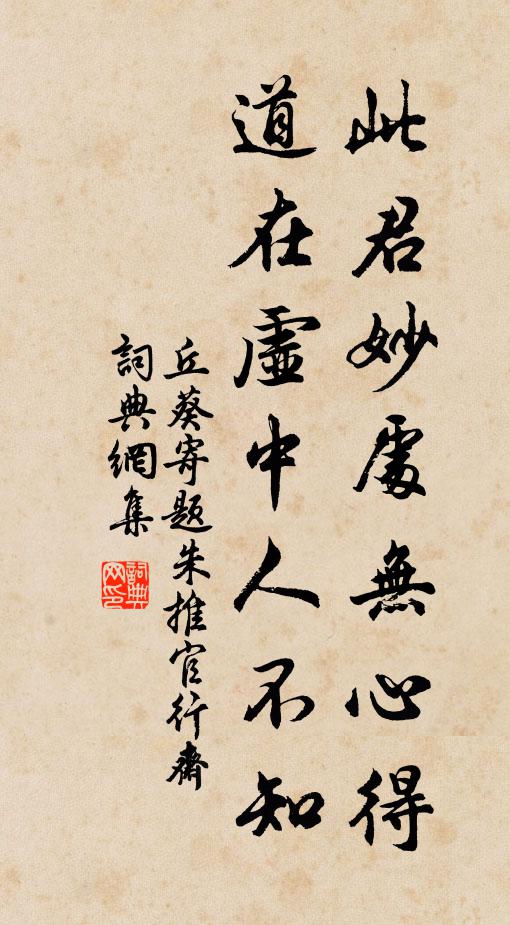 此君妙處無心得
道在虛中人不知
丘葵寄題朱推官行齋
詞典網集
詞典
网印